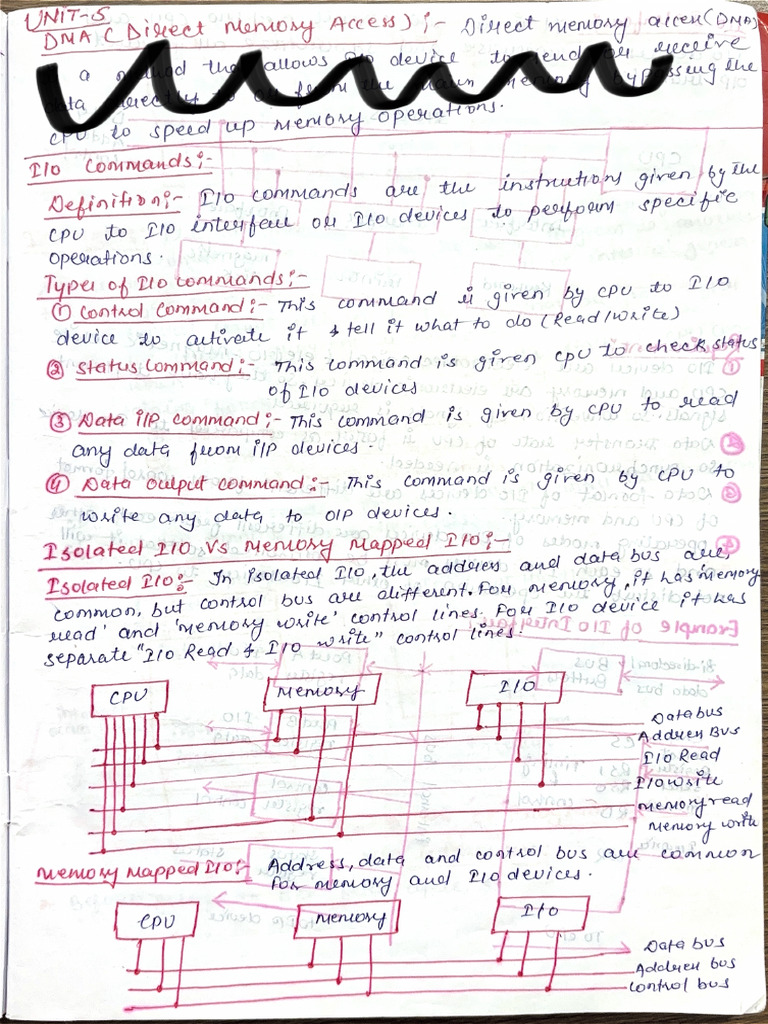 UNIT-5
DMA (Direct Memory Access) :- Direct memory access (DMA)
a method that allows I/O device to send or receive
data directly to or from the main memory bypassing the
CPU to speed up memory operations.
I/O Commands:-
Definition:- I/O commands are the instructions given by the
CPU to I/O interface or I/O devices to perform specific
operations.
Types of I/O commands:-
① Control Command:- This command is given by CPU to I/O
device to activate it & tell it what to do (Read/Write)
② Status Command:- This command is given CPU to check status
of I/O devices
③ Data I/P command:- This command is given by CPU to read
any data from i/P devices.
④ Data output command:- This command is given by CPU to
write any data to O/P devices.
Isolated I/O vs Memory Mapped I/O:-
Isolated I/O:- In isolated I/O, the address and data bus are
common, but control bus are different. For memory, it has memory
read' and 'memory write' control lines. For I/O device it has
separate "I/O Read & I/O write" control lines.
CPU Memory I/O
Data bus
Address Bus
I/O Read
I/O write
memory read
memory write
Memory Mapped I/O:- Address, data and control bus are common
for memory and I/O devices.
CPU Memory I/O
Data bus
Address bus
control bus